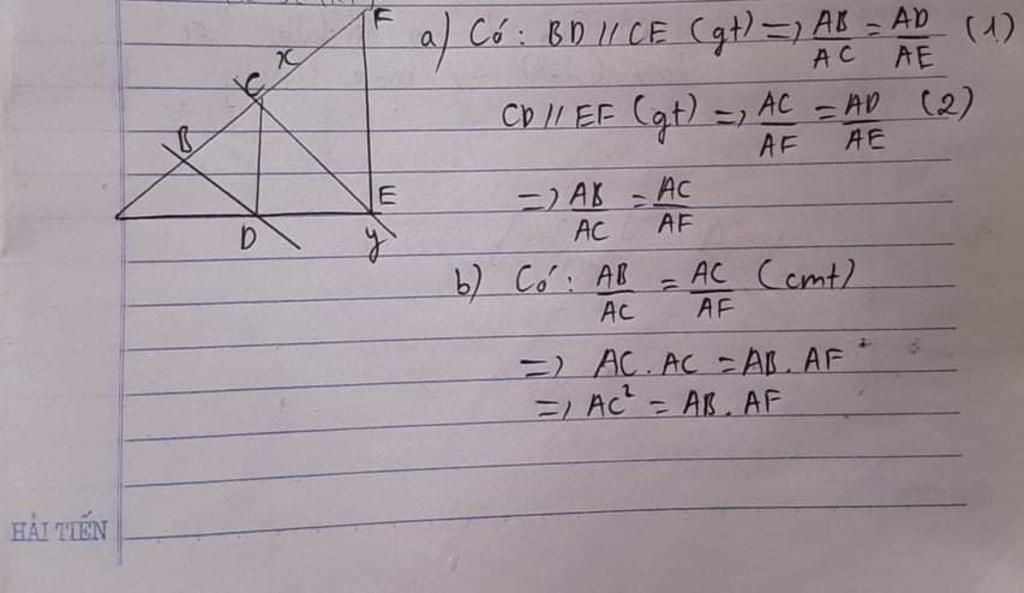 F
x
C
B
E
D
y
a) Có: BD // CE (gt) => AB/AC = AD/AE (1)
CD // EF (gt) => AC/AF = AD/AE (2)
=> AB/AC = AC/AF
b) Có: AB/AC = AC/AF (cmt)
=> AC . AC = AB . AF
=> AC² = AB . AF
HẢI TIẾN